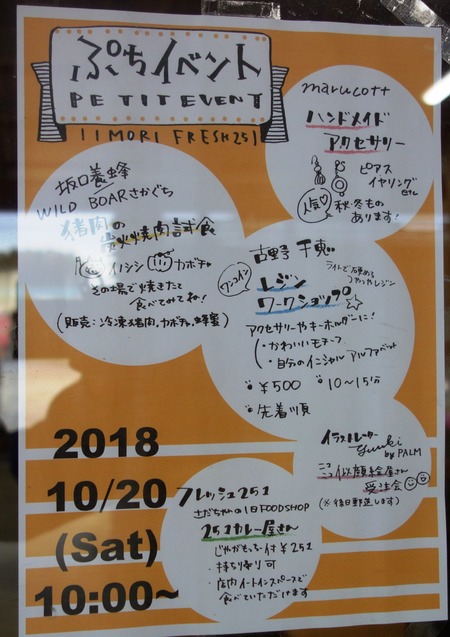 ぷちイベント
PETIT EVENT
IIMORI FRESH 251
marucott
ハンドメイド
アクセサリー
ピアス
イヤリング
etc
人気♡
秋・冬もの
あります!
坂口養蜂
WILD BOAR さかぐち
猪肉の
炭火焼肉試食
イノシシ カボチャ
その場で焼きたて
食べてみてね!
(販売:冷凍猪肉、カボチャ、蜂蜜)
古野 千恵
ライトで固める
レジン
ワンコイン
レジン
ワークショップ☆
アクセサリーやキーホルダーに!
・かわいいモチーフ
・自分のイニシャル アルファベット
¥500
10〜15分
先着順
イラストレーター
yuuki
by PALM
ニコニコ似顔絵屋さん
受注会
(※後日郵送します)
フレッシュ251
さだちゃんの1日FOODSHOP
251カレー屋さん
じゃがもっち一付 ¥251
・持ち帰り可
・店内イートインスペースで
食べていただけます
2018
10/20
(Sat)
10:00~